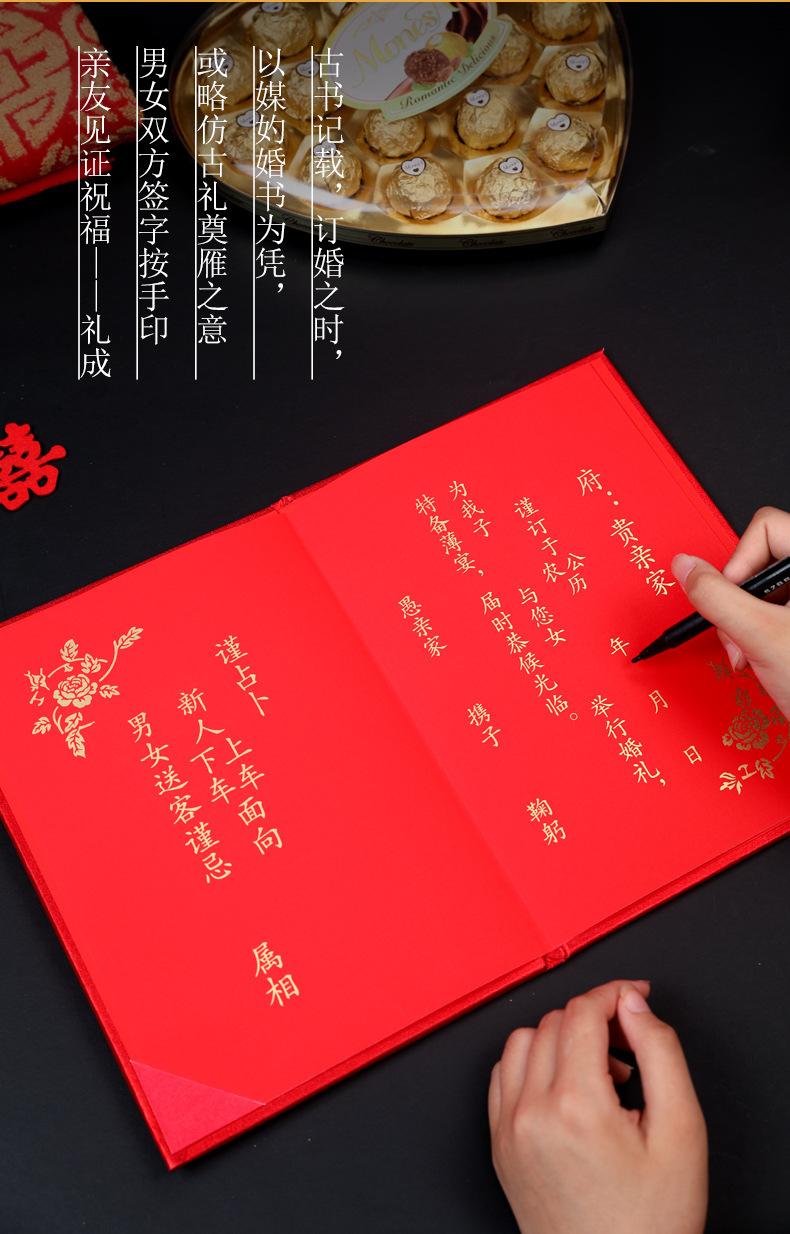 古书记载，订婚之时，
以媒妁婚书为凭，
或略仿古礼奠雁之意
男女双方签字按手印
亲友见证祝福——礼成
Mones
Romantic Delicious
Chocolate
Chocolate
Chocolate
囍
府：贵亲家
谨订于公历 年 月 日
农
为我子 与您女 举行婚礼，
特备薄宴，届时恭候光临。
愚亲家 携子 鞠躬
谨占卜
上车面向
新人下车
男女送客谨忌 属相